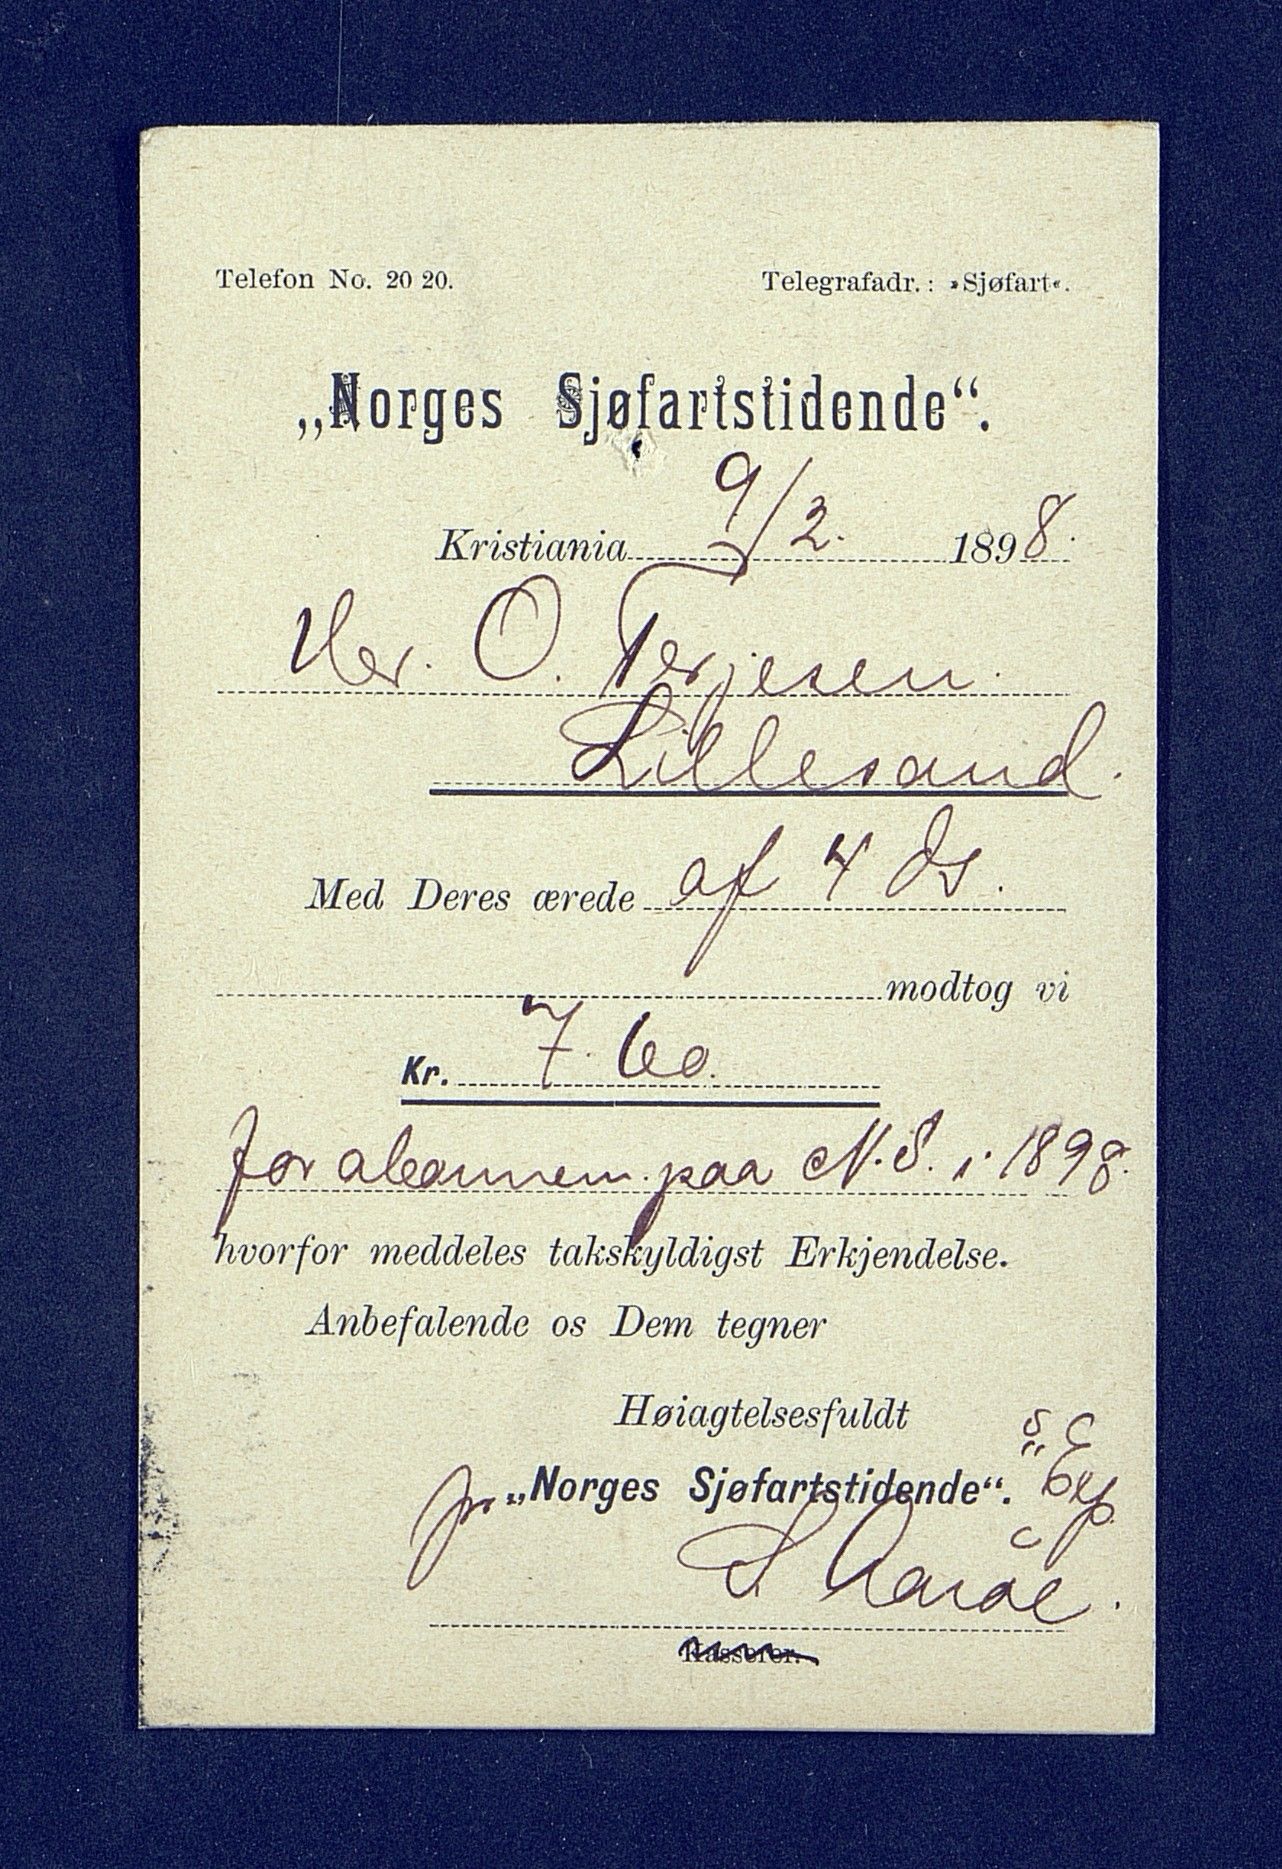 Telefon No. 20 20. Telegrafadr.: »Sjøfart«.
„Norges Sjøfartstidende“.
Kristiania 9/2. 1898.
Her. O. Terjesen.
Lillesand.
Med Deres ærede af 4 ds.
modtog vi
Kr. 7.60.
for abonnem. paa N.S. i 1898.
hvorfor meddeles takskyldigst Erkjendelse.
Anbefalende os Dem tegner
Høiagtelsesfuldt
pr „Norges Sjøfartstidende“. s Exp.
Kasserer.